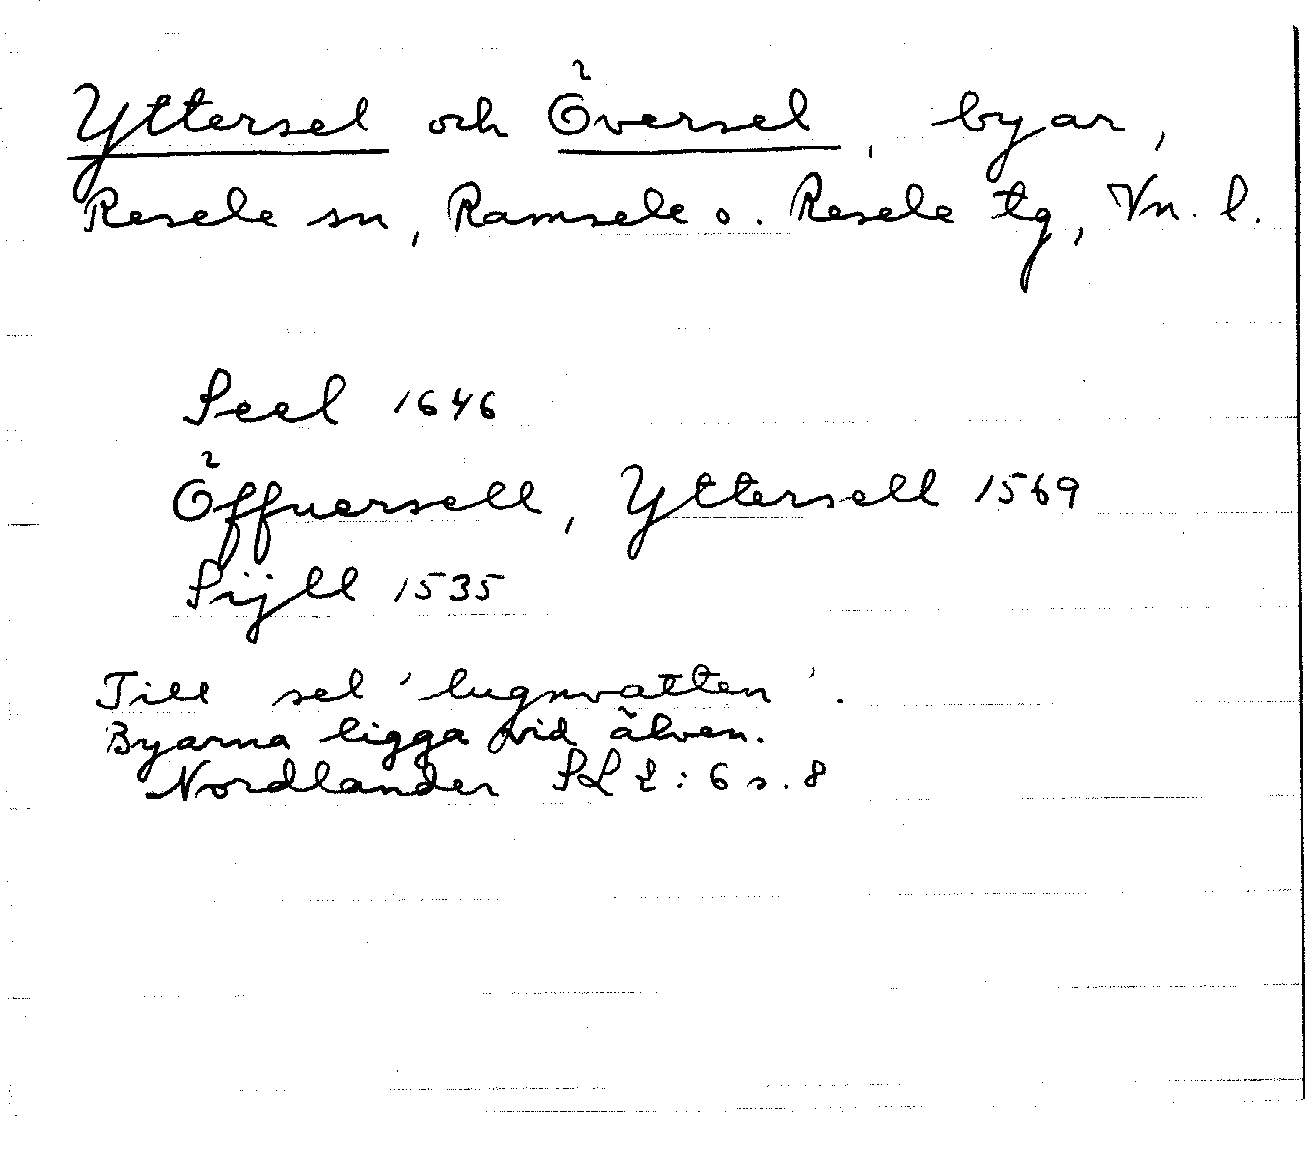 Yttersel och Översel, byar,
Resele sn, Ramsele o. Resele tg, Vn. l.
Seel 1646
Öffuersell, Yttersell 1569
Sijll 1535
Till sel 'lugnvatten'.
Byarna ligga vid älven.
Nordlander SL 2:6 s. 8